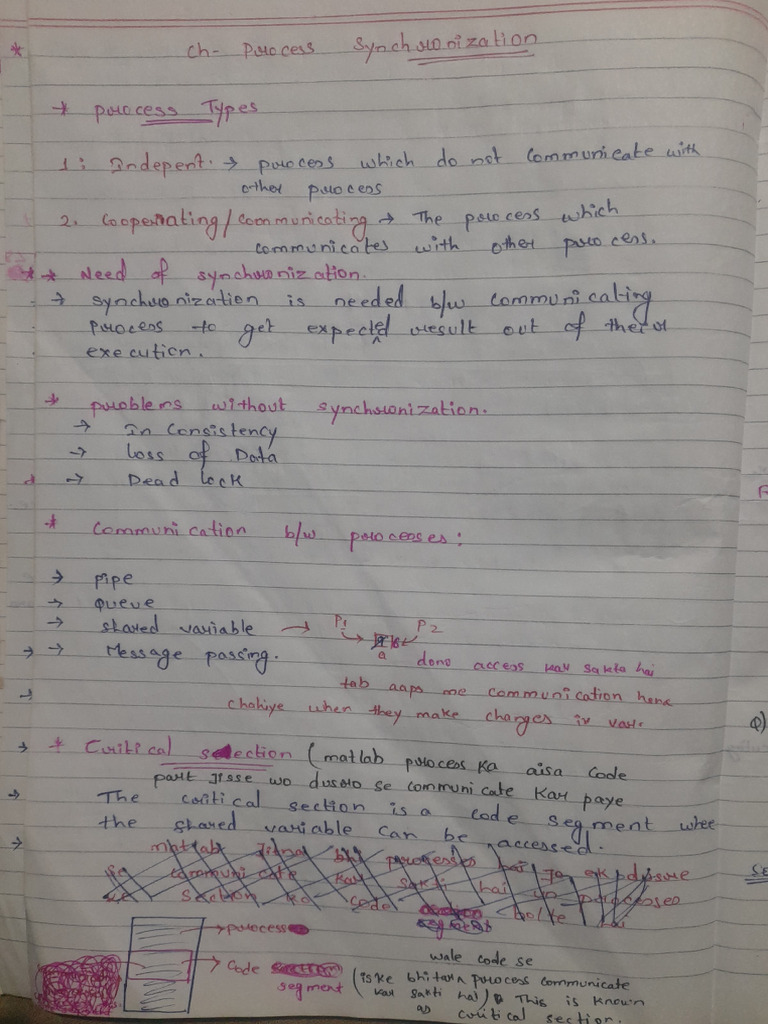 * Ch- Process Synchronization
* Process Types
1: Indepent. → process which do not communicate with
other process
2. Cooperating/communicating → The process which
communicates with other process.
* * Need of synchronization.
→ synchronization is needed b/w communicating
process to get expected result out of their
execution.
* problems without synchronization.
→ In Consistency
→ Loss of Data
→ Dead lock
* Communication b/w processes:
→ pipe
→ Queue
→ shared variable → P1 P2
→ Message passing. a dono access kar sakta hai
tab aaps me communication hona
chahiye when they make changes in var.
* Critical section (matlab process ka aisa code
part jisse wo dusro se communicate kar paye
→ The critical section is a code segment whee
the shared variable can be accessed.
matlab jitna bhi processes hai jo ek dusre
se communicate kar sakti hai
section ko code bolte
→ process
wale code se
→ Code segment (iske bhitar process communicate
kar sakti hai) This is known
as critical section.
Q)